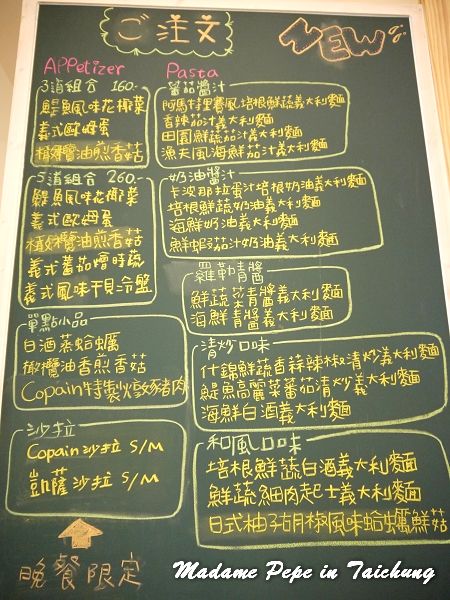 ご注文
NEW
APPetizer
3道組合 160-
鯷魚風味花椰菜
義式歐姆蛋
橄欖油煎香菇
5道組合 260-
鯷魚風味花椰菜
義式歐姆蛋
橄欖油煎香菇
義式蕃茄燴時蔬
義式風味干貝冷盤
單點小品
白酒蒸蛤蠣
橄欖油香煎香菇
Copain特製燉豬肉
沙拉
Copain沙拉 S/M
凱薩沙拉 S/M
晚餐限定
Pasta
蕃茄醬汁
阿馬特里賽風培根鮮蔬義大利麵
香辣茄汁義大利麵
田園鮮蔬茄汁義大利麵
漁夫風海鮮茄汁義大利麵
奶油醬汁
卡波那拉蛋汁培根奶油義大利麵
培根鮮蔬奶油義大利麵
海鮮奶油義大利麵
鮮蝦茄汁奶油義大利麵
羅勒青醬
鮮蔬菜青醬義大利麵
海鮮青醬義大利麵
清炒口味
什錦鮮蔬香蒜辣椒清炒義大利麵
鯷魚高麗菜蕃茄清炒義大利麵
海鮮白酒義大利麵
和風口味
培根鮮蔬白酒義大利麵
鮮蔬細肉起士義大利麵
日式柚子胡椒風味蛤蠣鮮菇
Madame Pepe in Taichung